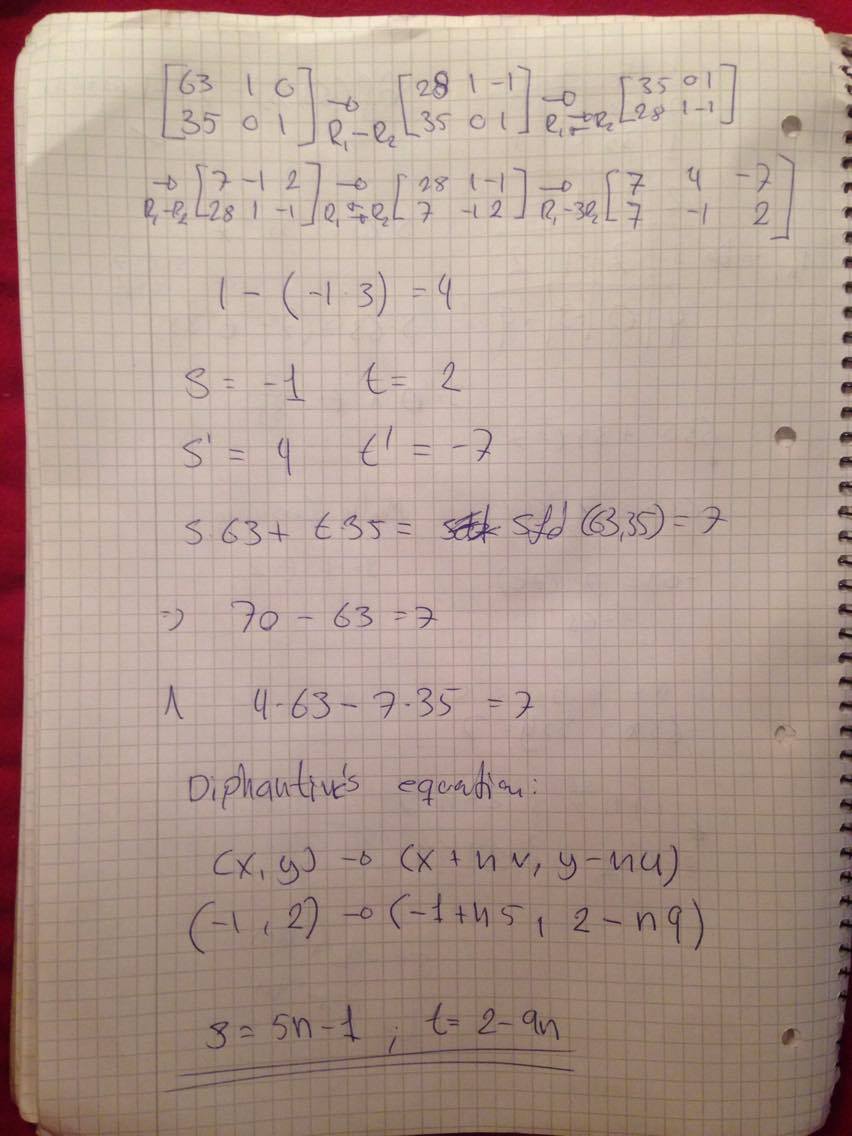 [63 1 0 / 35 0 1] → R₁-R₂ [28 1 -1 / 35 0 1] → R₁⇄R₂ [35 0 1 / 28 1 -1]
→ R₁-R₂ [7 -1 2 / 28 1 -1] → R₁⇄R₂ [28 1 -1 / 7 -1 2] → R₁-3R₂ [7 4 -7 / 7 -1 2]
1 - (-1·3) = 4
s = -1 t = 2
s' = 4 t' = -7
s·63 + t·35 = sfd (63,35) = 7
=> 70 - 63 = 7
∧ 4·63 - 7·35 = 7
equation:
(x, y) → (x + nv, y - nu)
(-1, 2) → (-1 + n5, 2 - n9)
s = 5n - 1 ; t = 2 - 9n